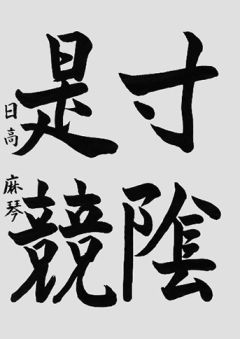 寸陰
是競
日高麻琴